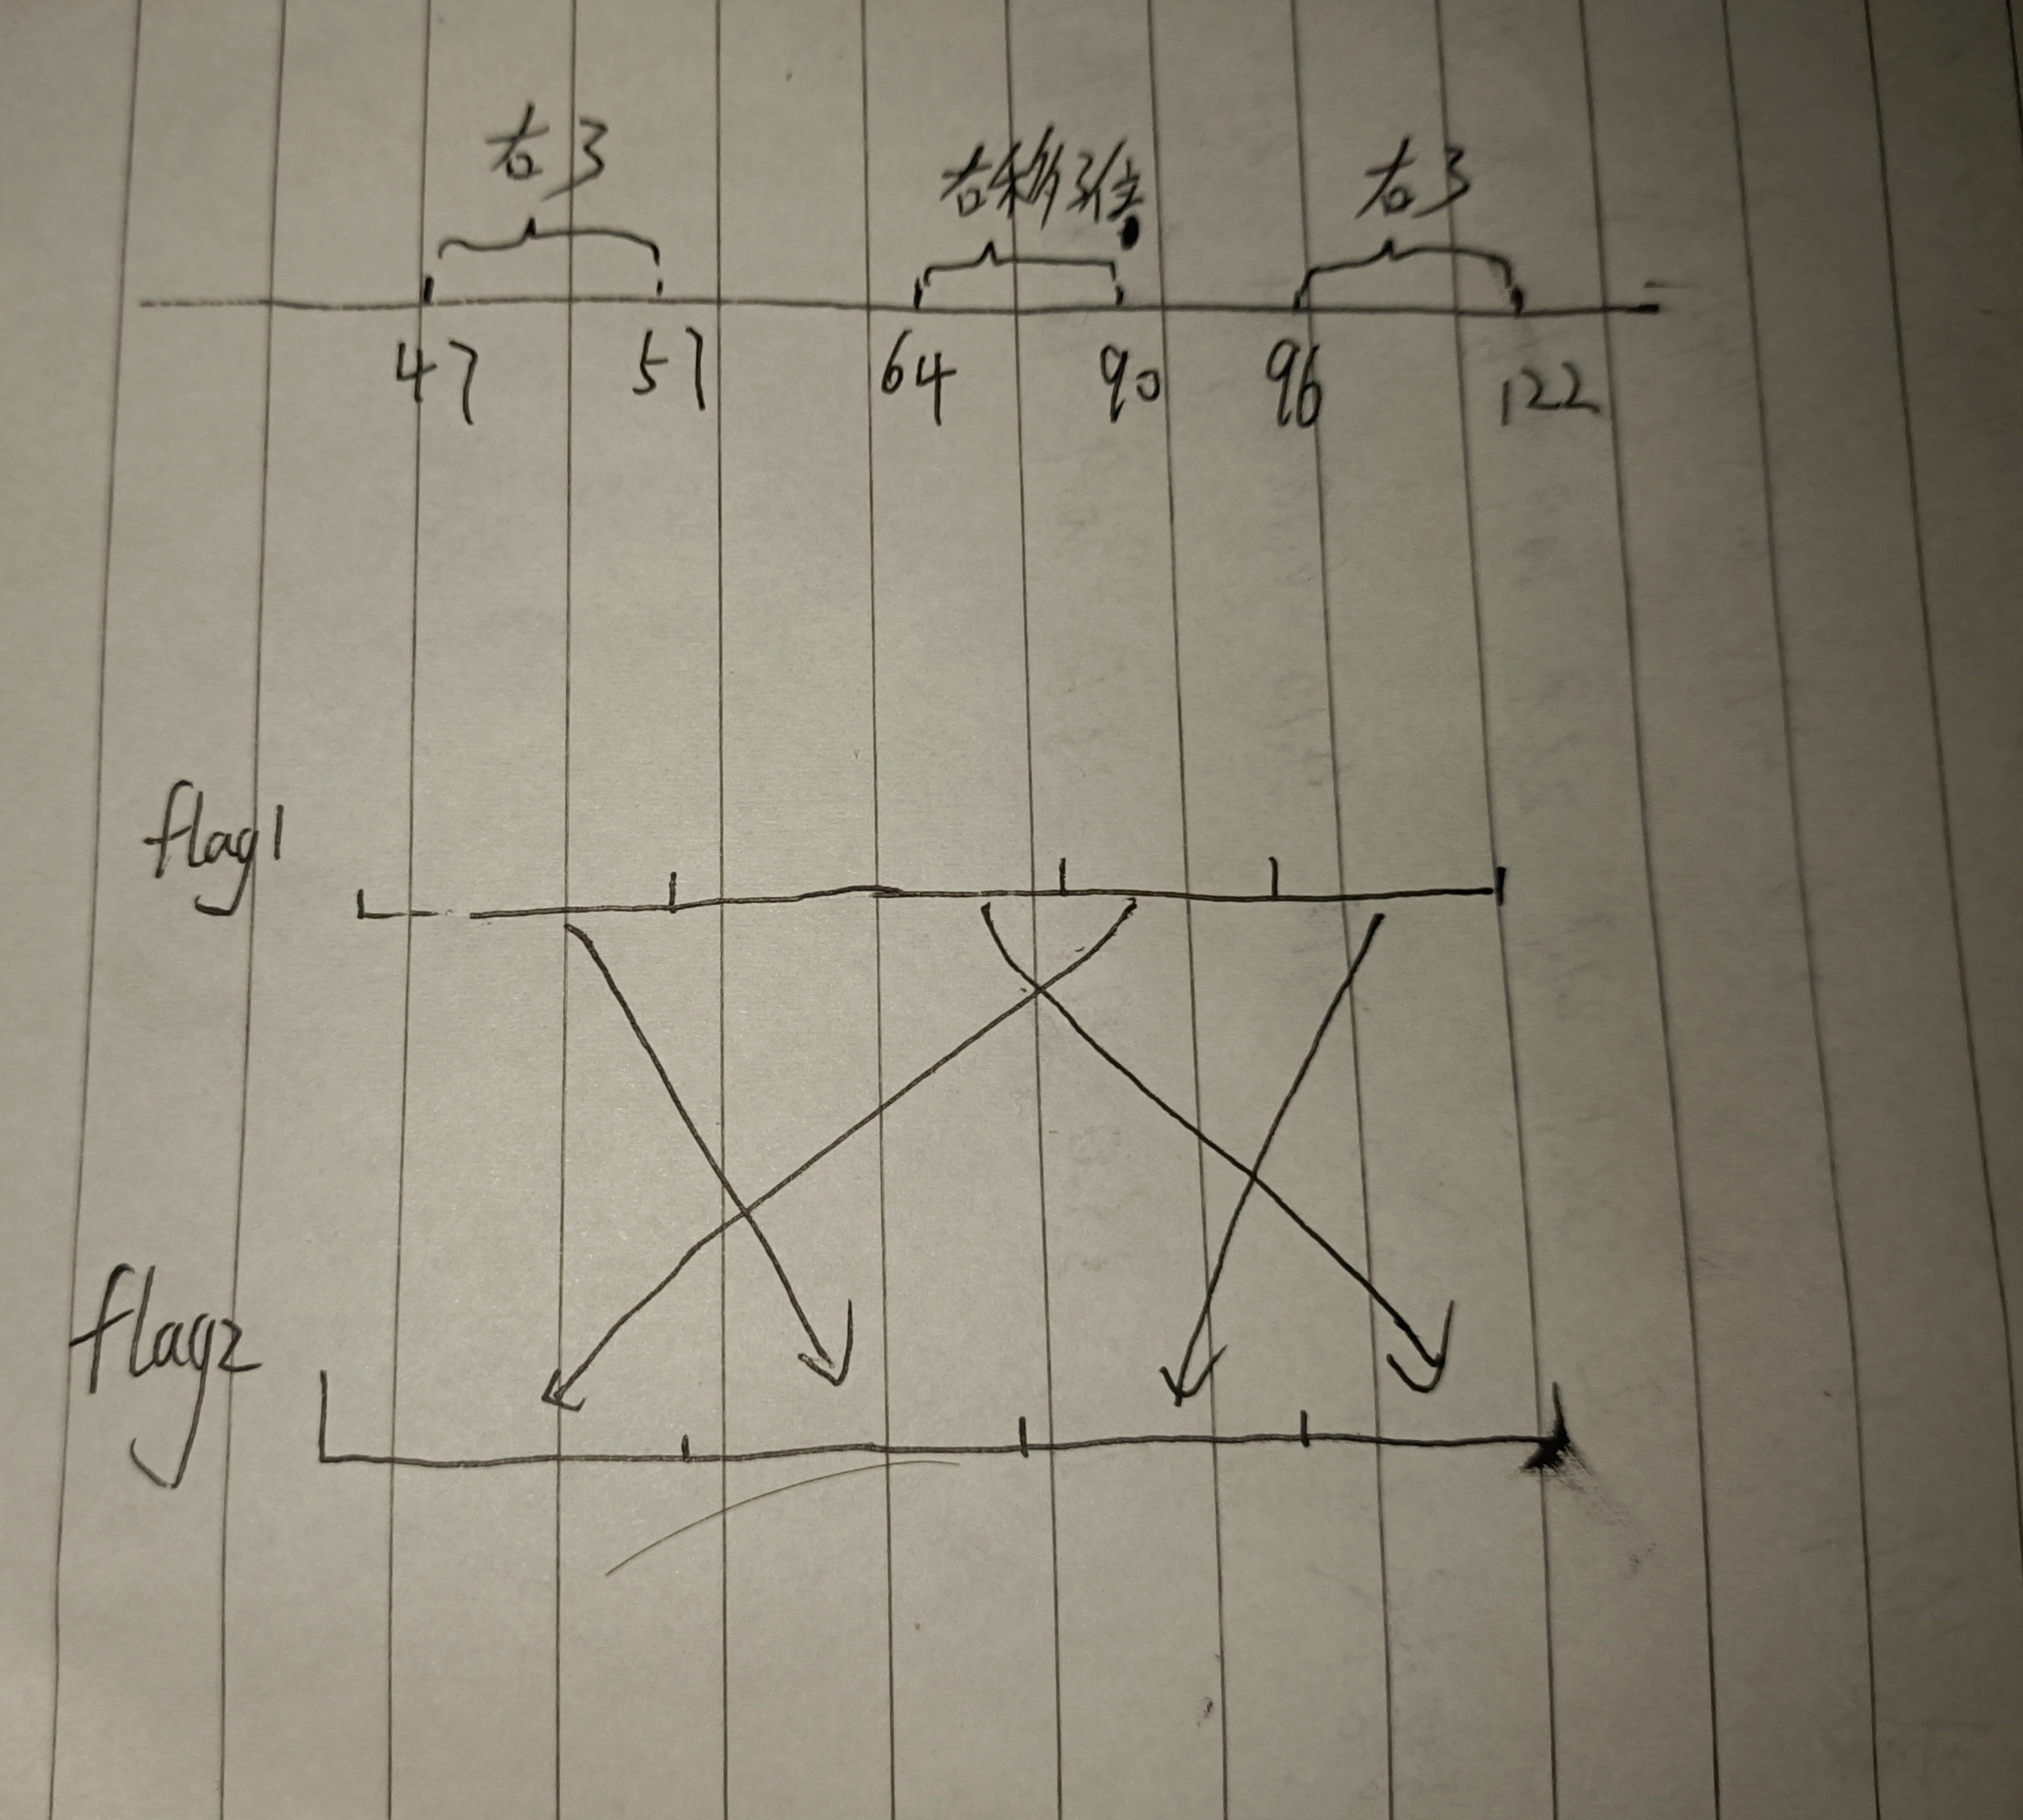 右3 右移3位 右3
47 57 64 90 96 122
flag1
flag2